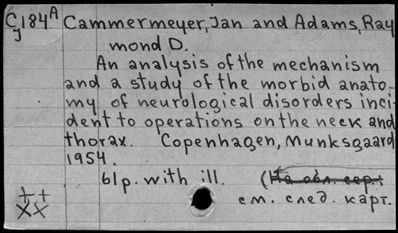 C184A Cammermeyer, Jan and Adams, Ray
J
mond D.
An analysis of the mechanism
and a study of the morbid anato-
my of neurological disorders inci-
dent to operations on the neck and
thorax. Copenhagen, Munksgaard
1954.
61p. with ill. (На обл. сер.:
см. след. карт.
++
××